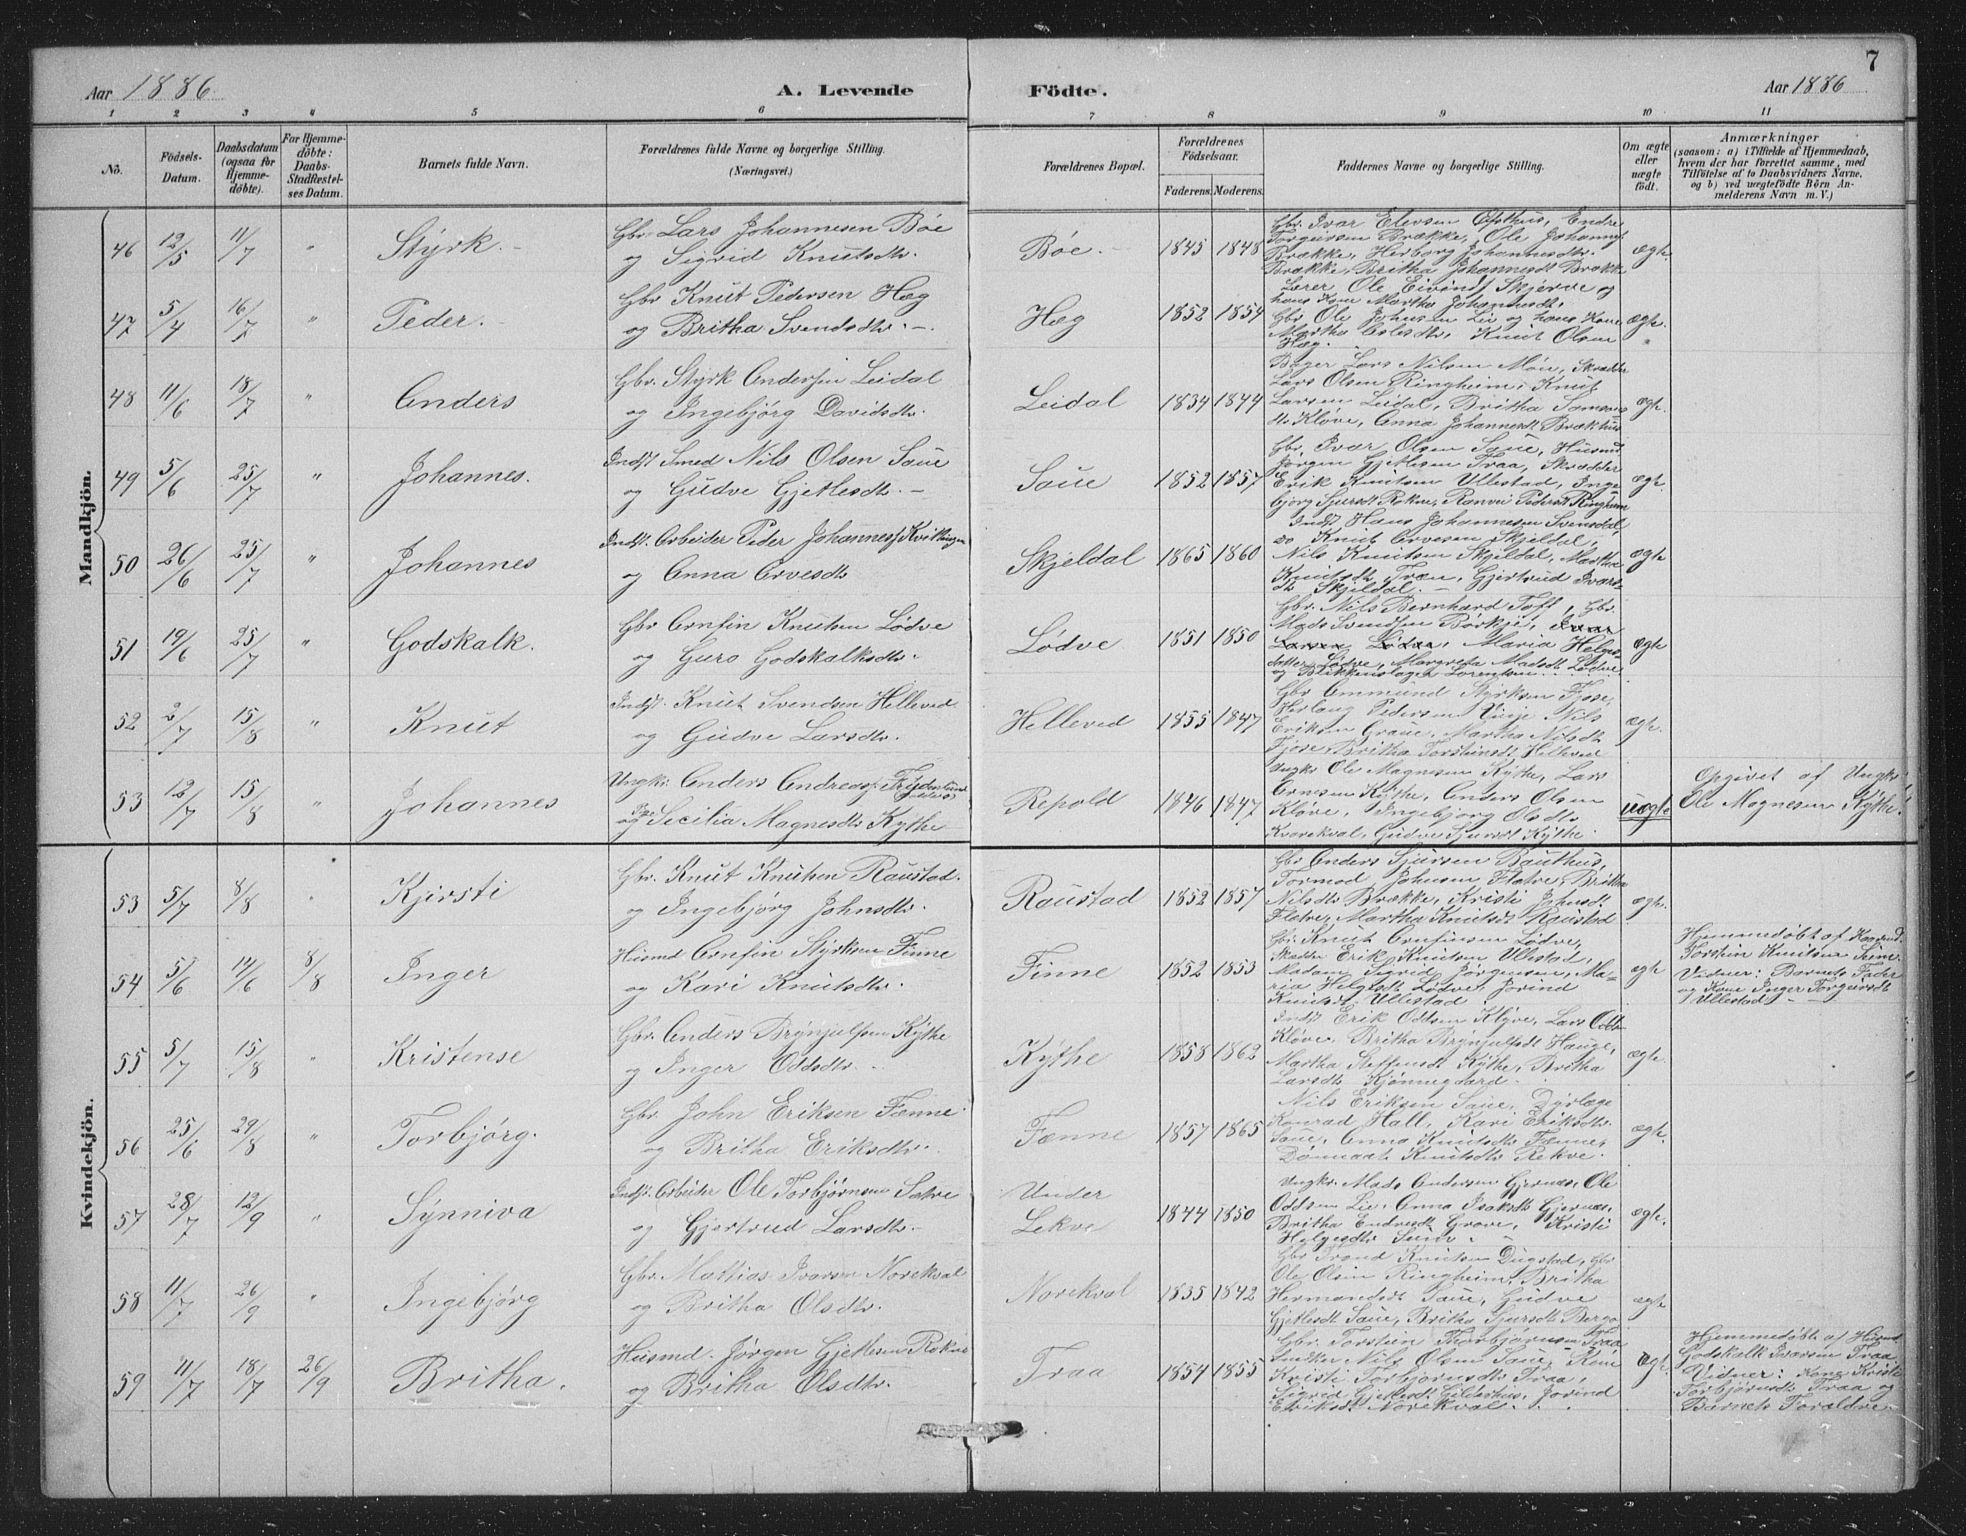 7
Aar 1886. A. Levende Födte. Aar 1886
1 2 3 4 5 6 7 8 9 10 11
No. Födsels-Datum. Daabsdatum (ogsaa for Hjemme-döbte). For Hjemme-döbte: Daabs Stadfestel-ses Datum. Barnets fulde Navn. Forældrenes fulde Navne og borgerlige Stilling. (Næringsvei.) Forældrenes Bopæl. Forældrenes Födselsaar. Faderens. Moderens. Faddernes Navne og borgerlige Stilling. Om ægte eller uægte födt. Anmærkninger (saasom: a) i Tilfælde af Hjemmedaab, hvem der har forrettet samme, med Tilföielse af to Daabsvidners Navne, og b) ved uægtefödte Börn An-melderens Navn m. V.)
Mandkjön.
46 12/5 11/7 " Styrk. Gbr. Lars Johannesen Bøe
og Sigrid Knutsdtr. Bøe. 1845 1848 ægte
Gbr. Ivar Elevsen Opsthus, Endre
Torgersen Brække, Ole Johannes
Brække, Herborg Johannesdtr.
Brække, Britha Johannesdt Brække
47 5/4 16/7 " Peder. Gbr Knut Pedersen Hæg
og Britha Svendsdtr. Hæg 1852 1854 ægte.
Lærer Ole Eivind Skjerve og
hans Kone Martha Johannesdtr.
Gbr Ole Johnsen Lie og hans Kone
Martha Olsdtr, Knut Olsen
Hæg.
48 11/6 18/7 " Anders Gbr. Styrk Andersen Leidal
og Ingebjørg Davidsdtr. Leidal 1834 1844 ægte.
Bager Lars Nilsen Møn, Skræder
Lars Olsen Ringheim, Knut
Larsen Leidal, Britha
Kløve, Anna Johannesdt Brækhus
49 5/6 25/7 " Johannes. Indst Smed Nils Olsen Saue
og Gudve Gjetlesdtr. Saue 1852 1857 ægte.
Gbr. Ivar Olsen Saue, Husmd
Jørgen Gjetlesen Traa, Skrædder
Erik Knutsen Ullestad, Inge
bjørg Sjursdt Rokne, Ranvei Pedersdt Ringheim
50 26/6 25/7 " Johannes Indst. Arbeider Peder Johannes Kvithingen
og Anna Arvesdtr Skjeldal 1865 1860 ægte
Indst Hans Johannesen Svensdal,
do Knut Arvesen Skjeldal,
Nils Knutsen Skjeldal, Martha
Knutsdt Træn, Gjertrud Ivars-
dt Skjeldal.
51 19/6 25/7 " Godskalk. Gbr Arnfin Knutsen Lødve
og Guro Godskalksdtr. Lødve 1851 1850 ægte
Gbr. Nils Bernhard Toft, Gbr.
Mads Svendsen Børkje, Ivar
Larsen Lødve, Maria Helges-
datter Lødve, Margreta Madsdt Lødve
og Blikkenslager Lorentsen.
52 2/7 15/8 " Knut Indst. Knut Svendsen Helleved
og Gudve Larsdtr. Helleved 1855 1847 ægte.
Gbr Ommund Styrksen Fjose,
Herlaug Pedersen Nils
Eriksen Graue, Martha Nilsdt
Fjose, Britha Torsteinsdt Helleved
53 12/7 15/8 " Johannes Ungkr. Anders Andreas Frydenlund
og Pge Secilia Magnesdtr Kythe Repold 1846 1847 uægte
Ungkr Ole Magnesen Kythe, Lars
Arnesen Kythe, Anders Olsen
Kløve, Ingebjørg Olsdt
Kvarekval, Gudve Sjursdt Kythe
Opgivet af Ungkr.
Ole Magnesen Kythe!
Kvindekjön.
53 5/7 8/8 " Kjirsti Gbr. Knut Knutsen Raustad.
og Ingebjørg Johnsdtr. Raustad 1852 1857 ægte.
Gbr Anders Sjursen Bauthus,
Tormod Johnsen Flatve, Britha
Nilsdt Brække, Kristi Johnsdt
Flatve, Martha Knutsdt Raustad
54 5/6 14/6 8/8 Inger Husmd Arnfin Styrksen Finne
og Kari Knutsdtr. Finne 1852 1853 ægte
Gbr. Knut Arnfinsen Lødve,
Skrædder Erik Knutsen Ullestad,
Madam Sigrid Jørgensen, Ma-
ria Helgesdt Lødve, Jorind
Knutsdt Ullestad.
Hjemmedøbt af
Torstein Knutsen Finne.
Vidner: Barnets Fader
og Kone Inger Torgersdt
Ullestad
55 5/7 15/8 " Kristense Gbr. Anders Brynjulfsen Kythe
og Inger Oddsdtr. Kythe 1858 1862 ægte.
Indst Erik Oddsen Kløve, Lars Odds
Kløve, Britha Brynjulfsdt Hauge,
Martha Steffensdt Kythe, Britha
Larsdt Kjønnegaard.
56 25/6 29/8 " Torbjørg. Gbr. John Eriksen Fenne
og Britha Eriksdtr. Fenne 1857 1865 ægte.
Nils Eriksen Saue, Dyrlæge
Konrad Hall, Kari Eriksdtr.
Saue, Anna Knutsdt Fenne,
Knutsdtr Rekve.
57 28/7 12/9 " Synniva Indst. Arbeider Ole Torbjørnsen Sætre
og Gjertrud Larsdtr. Under
Lekve 1844 1850 ægte.
Ungkr. Mads Andersen Gjernæs, Ole
Oddsen Lie, Anna Isaksdt Gjernæs,
Britha Endresdt Grove, Kristi
Helgesdtr Saue.
58 11/7 26/9 " Ingebjørg Gbr. Mathias Ivarsen Norekval
og Britha Olsdtr. Norekval 1835 1842 ægte
Gbr Trond Knutsen Dugstad, Gbr
Ole Olsen Ringheim, Britha
Hermandsdt Saue, Gudve
Gjetlesdt Saue, Britha Sjursdt Berge
59 11/7 18/7 26/9 Britha. Husmd. Jørgen Gjetlesen Rokne
og Britha Olsdtr. Traa 1854 1855 ægte.
Gbr. Torstein Thorbjørnsen Traa
Nils Olsen Saue, Kone
Kristi Torbjørnsdt Traa,
Sigrid Gjetlesdt Gilderhus, Jorind
Eriksdt Norekval.
Hjemmedøbt af Husmd
Godskalk Ivarsen Traa
Vidner: Kone Kristi
Torbjørnsdt Traa og
Barnets Forældre